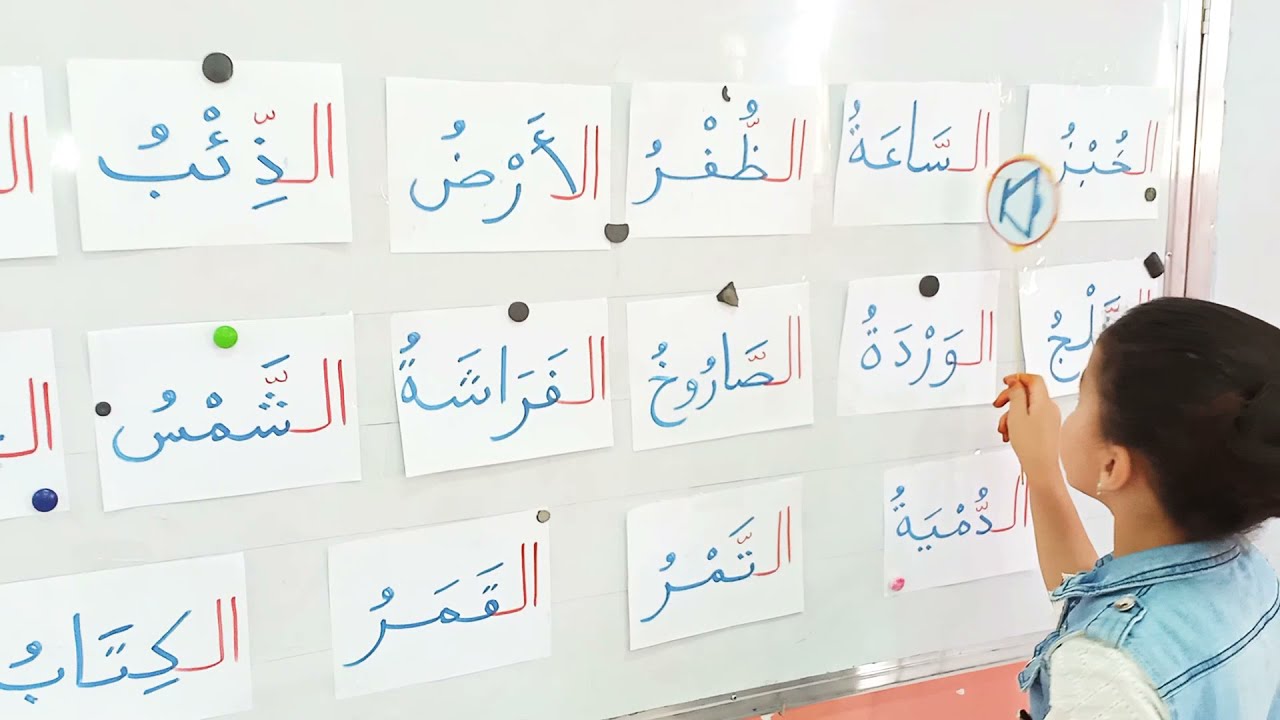 الخُبْزُ
السَّاعَةُ
الظُّفْرُ
الأَرْضُ
الذِّئْبُ
الوَرْدَةُ
الصَّارُوخُ
الفَرَاشَةُ
الشَّمْسُ
الدُّمْيَةُ
التَّمْرُ
القَمَرُ
الكِتَابُ